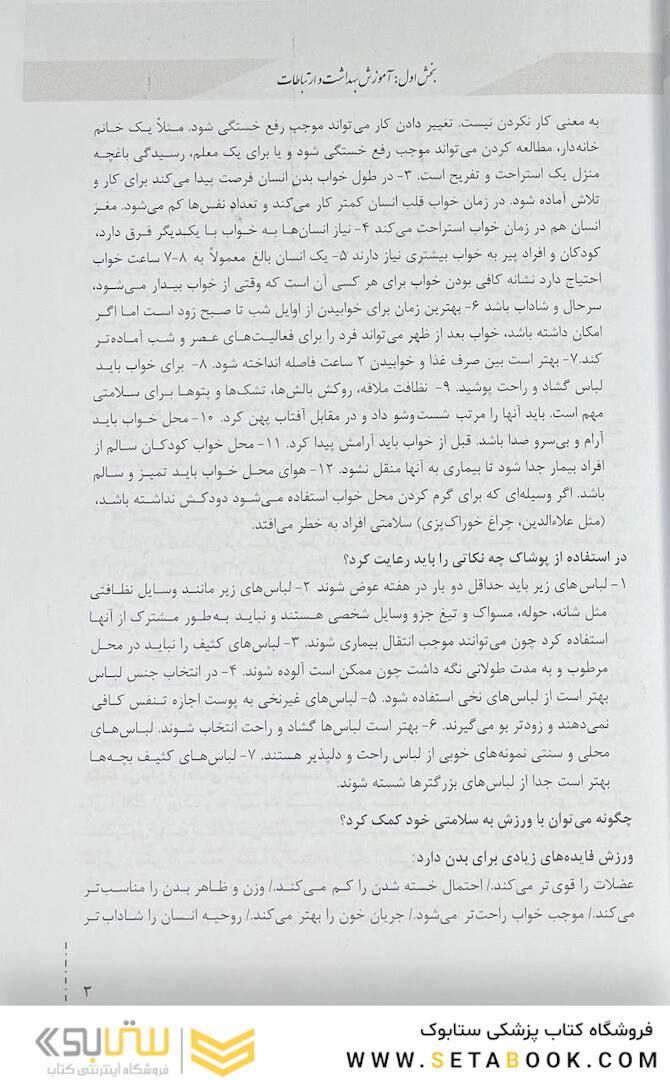 بخش اول: آموزش بهداشت و ارتباطات
به معنی کار نکردن نیست. تغییر دادن کار می‌تواند موجب رفع خستگی شود. مثلاً یک خانم
خانه‌دار، مطالعه کردن می‌تواند موجب رفع خستگی شود و یا برای یک معلم، رسیدگی باغچه
منزل یک استراحت و تفریح است. ۳- در طول خواب بدن انسان فرصت پیدا می‌کند برای کار و
تلاش آماده شود. در زمان خواب قلب انسان کمتر کار می‌کند و تعداد نفس‌ها کم می‌شود. مغز
انسان هم در زمان خواب استراحت می‌کند ۴- نیاز انسان‌ها به خواب با یکدیگر فرق دارد،
کودکان و افراد پیر به خواب بیشتری نیاز دارند ۵- یک انسان بالغ معمولاً به ۸-۷ ساعت خواب
احتیاج دارد نشانه کافی بودن خواب برای هر کسی آن است که وقتی از خواب بیدار می‌شود،
سرحال و شاداب باشد ۶- بهترین زمان برای خوابیدن از اوایل شب تا صبح زود است اما اگر
امکان داشته باشد، خواب بعد از ظهر می‌تواند فرد را برای فعالیت‌های عصر و شب آماده‌تر
کند.۷- بهتر است بین صرف غذا و خوابیدن ۲ ساعت فاصله انداخته شود. ۸- برای خواب باید
لباس گشاد و راحت پوشید. ۹- نظافت ملافه، روکش بالش‌ها، تشک‌ها و پتوها برای سلامتی
مهم است. باید آنها را مرتب شست‌وشو داد و در مقابل آفتاب پهن کرد. ۱۰- محل خواب باید
آرام و بی‌سرو صدا باشد. قبل از خواب باید آرامش پیدا کرد. ۱۱- محل خواب کودکان سالم از
افراد بیمار جدا شود تا بیماری به آنها منقل نشود. ۱۲- هوای محل خواب باید تمیز و سالم
باشد. اگر وسیله‌ای که برای گرم کردن محل خواب استفاده می‌شود دودکش نداشته باشد،
(مثل علاءالدین، چراغ خوراک‌پزی) سلامتی افراد به خطر می‌افتد.
در استفاده از پوشاک چه نکاتی را باید رعایت کرد؟
۱- لباس‌های زیر باید حداقل دو بار در هفته عوض شوند ۲- لباس‌های زیر مانند وسایل نظافتی
مثل شانه، حوله، مسواک و تیغ جزو وسایل شخصی هستند و نباید به‌طور مشترک از آنها
استفاده کرد چون می‌توانند موجب انتقال بیماری شوند. ۳- لباس‌های کثیف را نباید در محل
مرطوب و به مدت طولانی نگه داشت چون ممکن است آلوده شوند. ۴- در انتخاب جنس لباس
بهتر است از لباس‌های نخی استفاده شود. ۵- لباس‌های غیرنخی به پوست اجازه تنفس کافی
نمی‌دهند و زودتر بو می‌گیرند. ۶- بهتر است لباس‌ها گشاد و راحت انتخاب شوند. لباس‌های
محلی و سنتی نمونه‌های خوبی از لباس راحت و دلپذیر هستند. ۷- لباس‌های کثیف بچه‌ها
بهتر است جدا از لباس‌های بزرگترها شسته شوند.
چگونه می‌توان با ورزش به سلامتی خود کمک کرد؟
ورزش فایده‌های زیادی برای بدن دارد:
عضلات را قوی تر می‌کند./ احتمال خسته شدن را کم می‌کند./ وزن و ظاهر بدن را مناسب‌تر
می‌کند./ موجب خواب راحت‌تر می‌شود./ جریان خون را بهتر می‌کند./ روحیه انسان را شاداب تر
۳
فروشگاه کتاب پزشکی ستابوک
WWW.SETABOOK.COM
ستابوک
فروشگاه اینترنتی کتاب